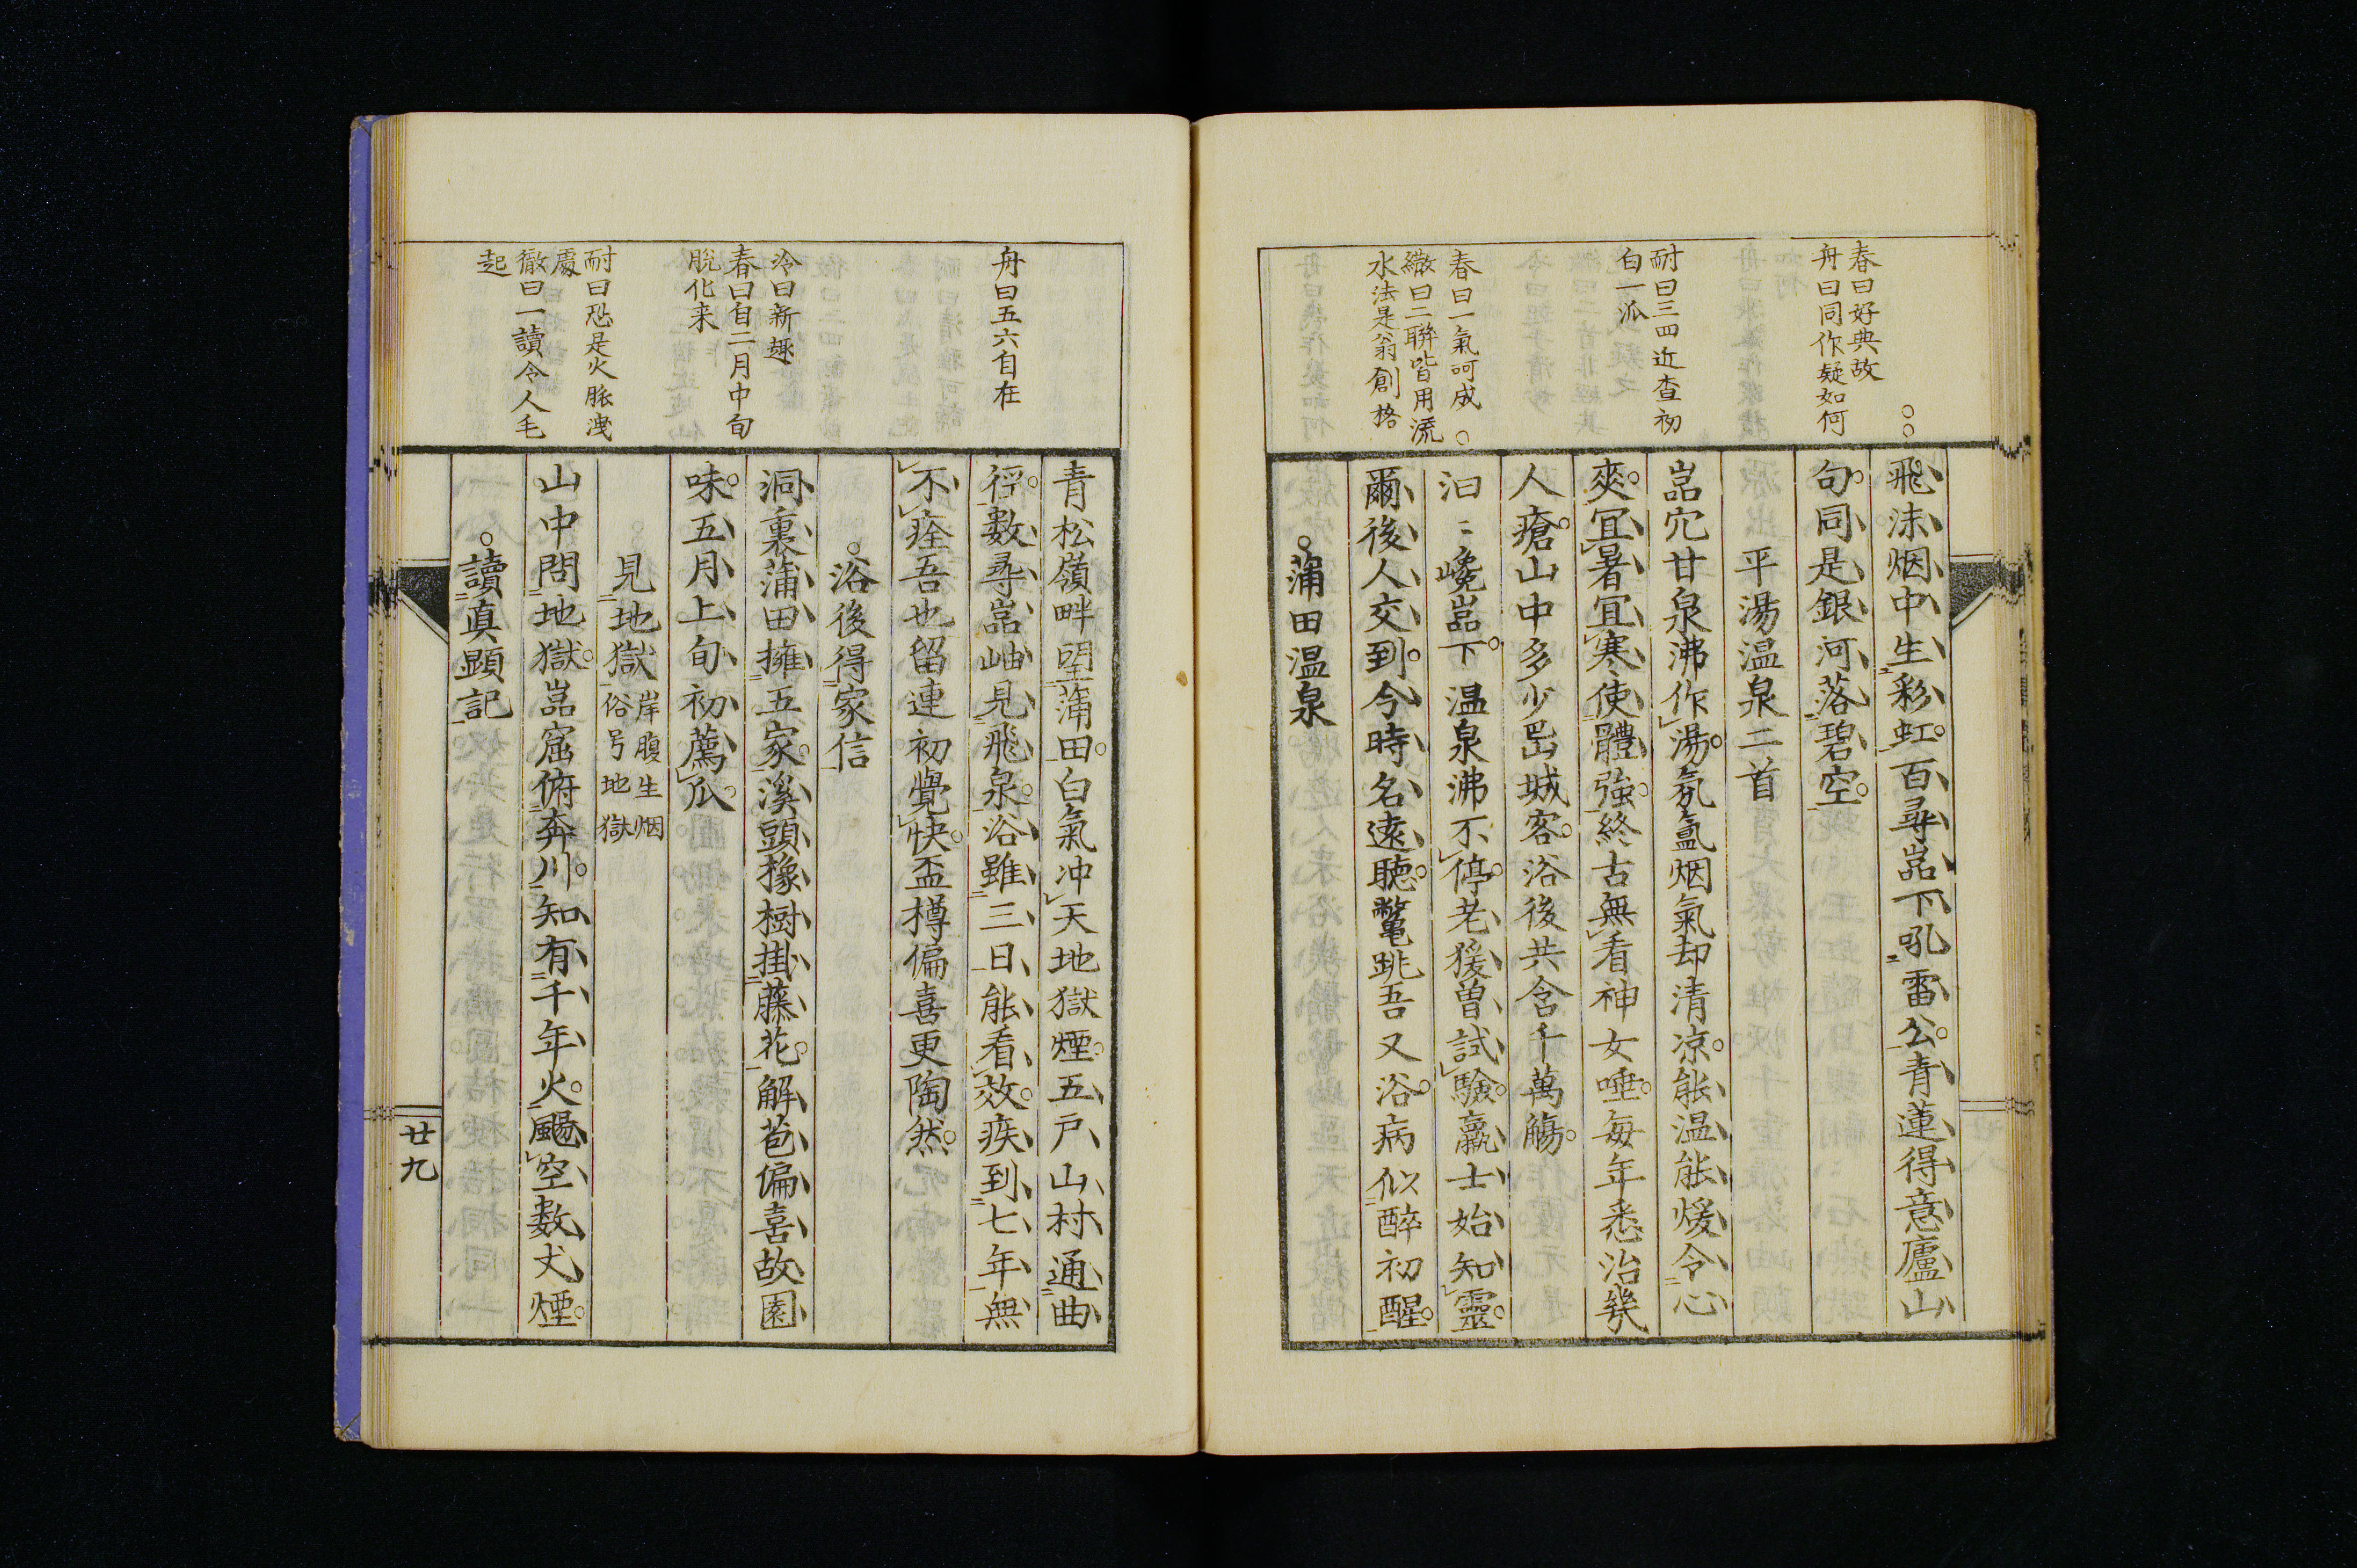 春曰好典故
舟曰同作疑如何
耐曰三四近查初
白一派
春曰一氣呵成
繳曰二聯皆用流
水法是翁創格
飛沫烟中生彩虹百尋嵓下吼雷公青蓮得意廬山
句同是銀河落碧空
平湯温泉二首
嵓穴甘泉沸作湯氛氳烟氣却清凉能温能煖令心
爽冝暑冝寒使體強終古無看神女唾每年悉治幾
人瘡山中多少嵒城客浴後共含千萬觴
汩〻巉嵓下温泉沸不停老猨曽試驗羸士始知靈
爾後人交到今時名遠聴鼈跳吾又浴病似醉初醒
蒲田温泉
舟曰五六自在
冷曰新趣
春曰自二月中旬
脱化来
耐曰恐是火脈洩
處
徹曰一讀令人毛
起
青松嶺畔望蒲田白氣冲天地獄煙五戸山村通曲
徑數尋嵓岫見飛泉浴雖三日能看效疾到七年無
不痊吾也留連初覺快盃樽偏喜更陶然
浴後得家信
洞裏蒲田擁五家溪頭橡樹掛藤花解苞偏喜故園
味五月上旬初薦瓜
見地獄岸腹生烟
俗号地獄
山中問地獄嵓窟俯奔川知有千年火颺空數丈煙
讀真顕記
廿九